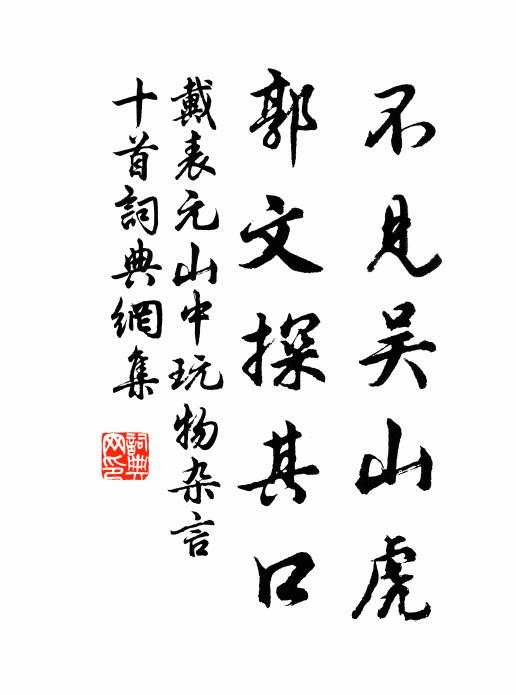 不见吴山虎
郭文探其口
戴表元山中玩物杂言
十首詞典網集
詞典
网印